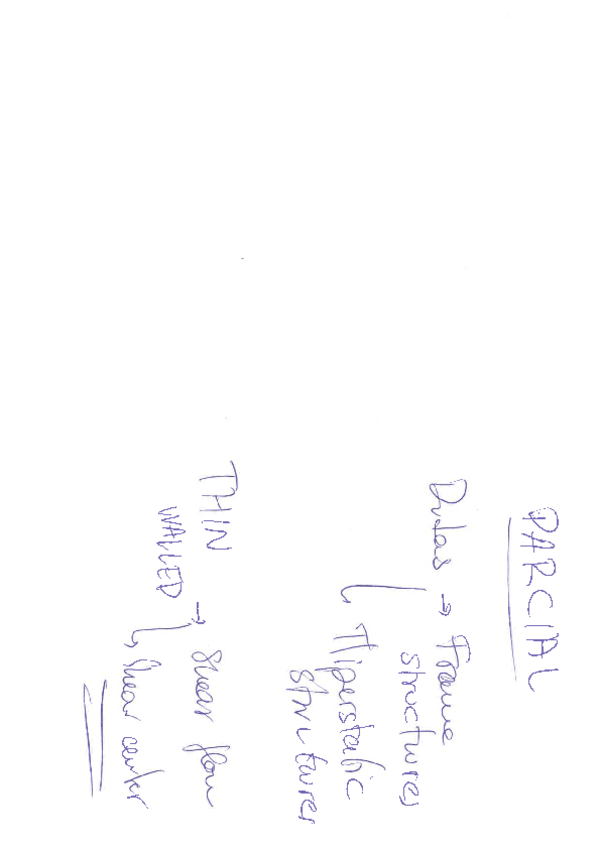 PARCIAL
Dudas → Frame
structures
↳ Hiperstatic
structures
THIN
WALLED → Shear flow
↳ Shear center